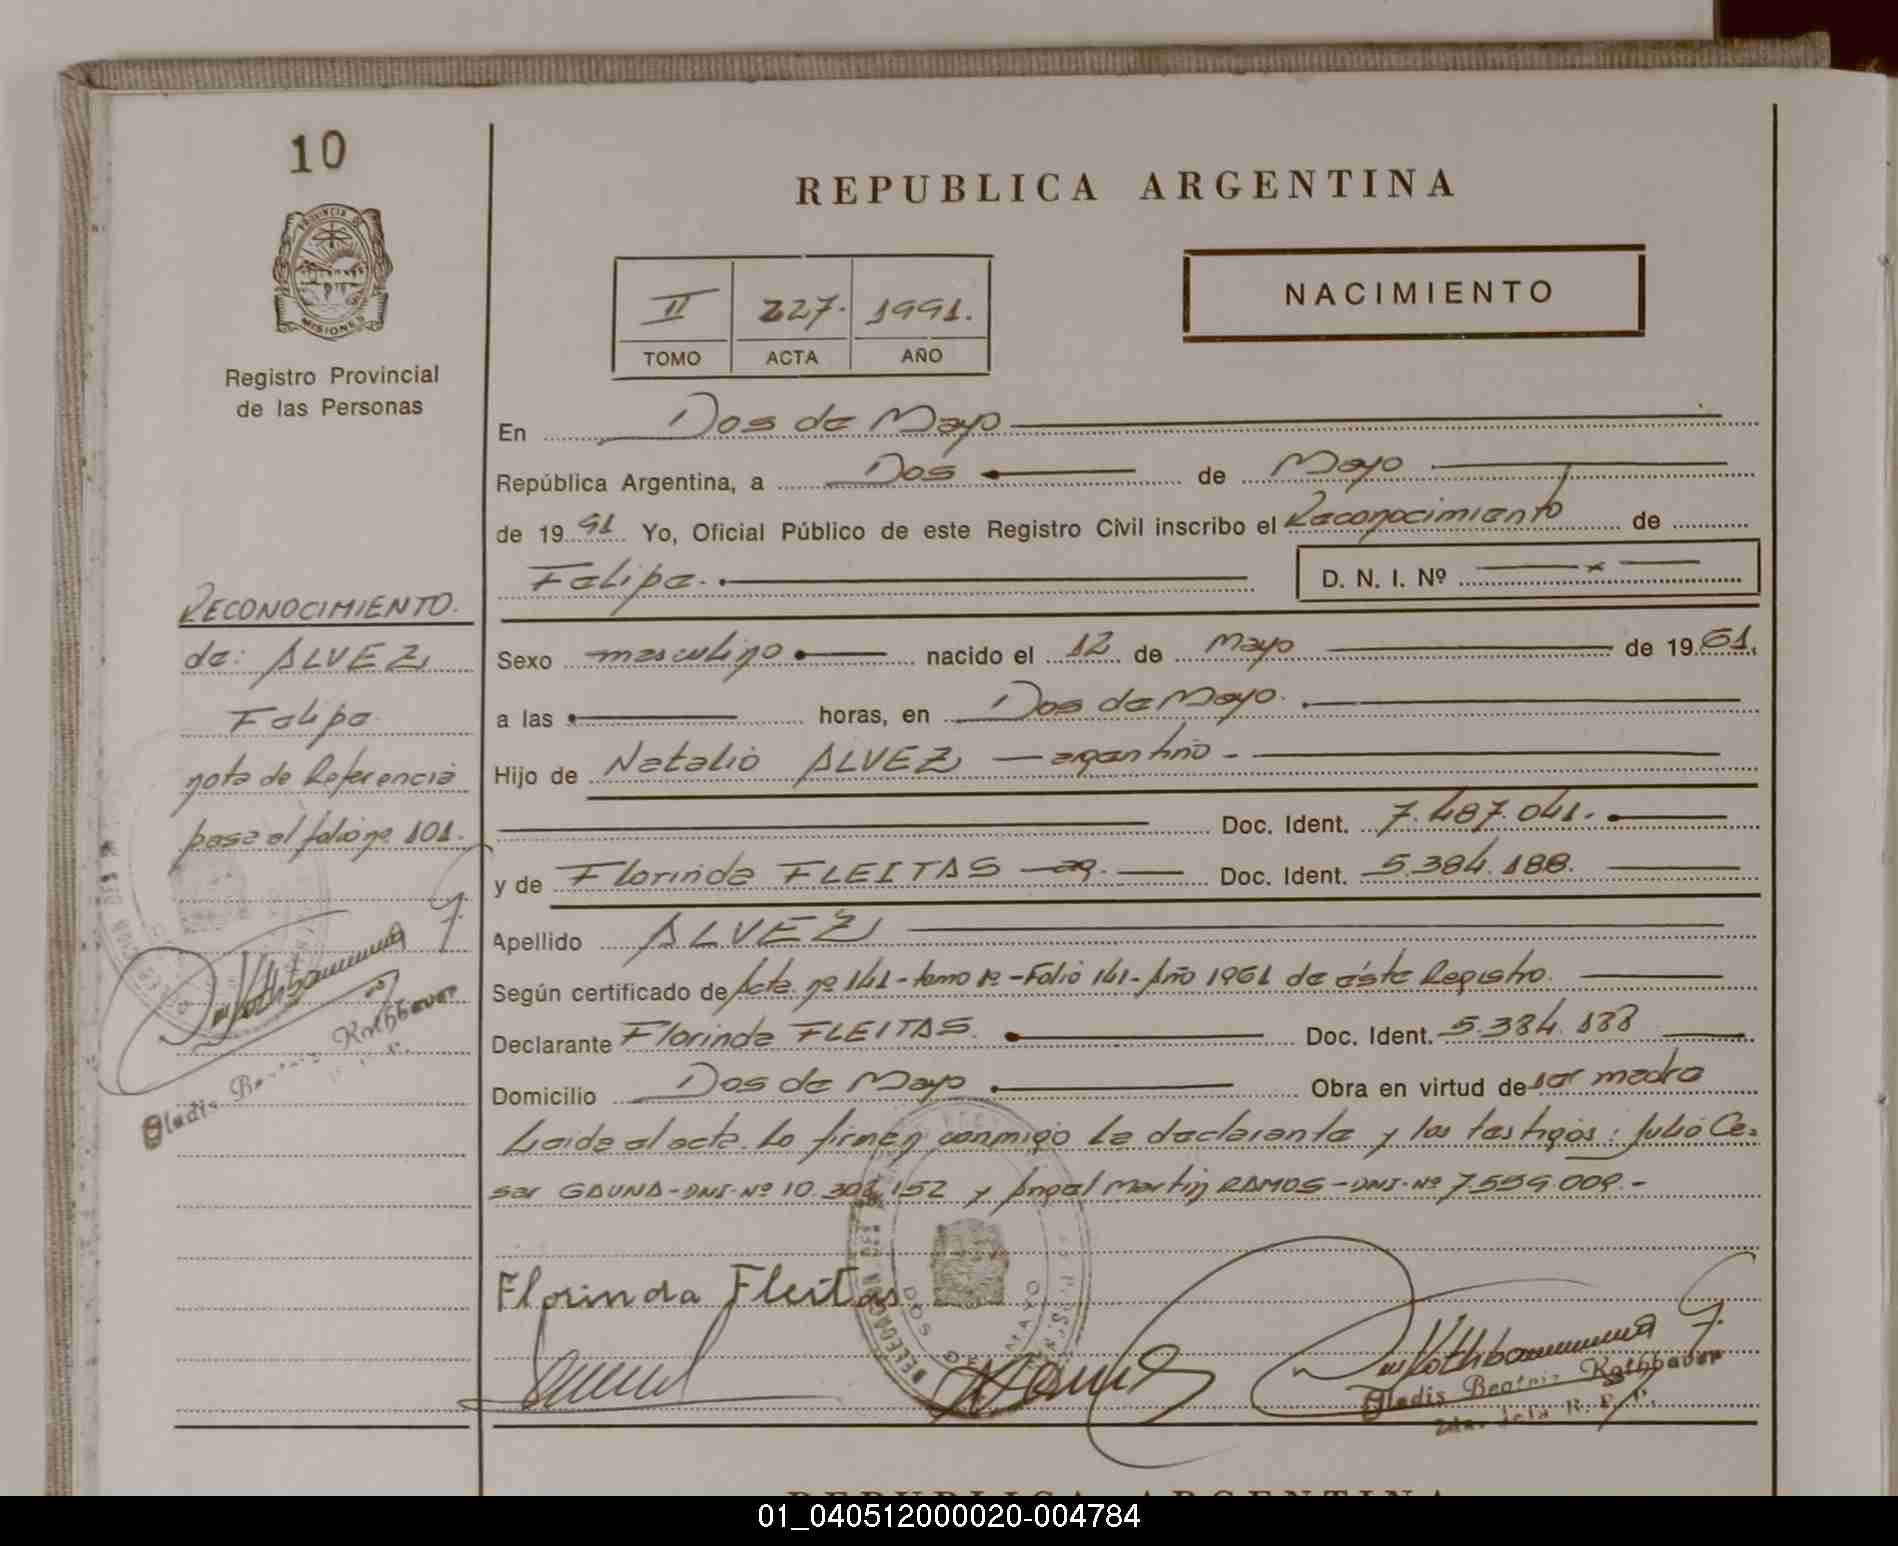 10
PROVINCIA DE
MISIONES
Registro Provincial
de las Personas
RECONOCIMIENTO.
de: ALVEZ
Felipe
nota de Referencia
pasa al folio nº 101.
Rothbauer
Gladis Rothbauer
REPUBLICA ARGENTINA
II 227. 1991.
TOMO ACTA AÑO
NACIMIENTO
En Dos de Mayo
República Argentina, a Dos de Mayo
de 1991 Yo, Oficial Público de este Registro Civil inscribo el Reconocimiento de
Felipe. D. N. I. Nº — x —
Sexo masculino nacido el 12 de Mayo de 1961.
a las horas, en Dos de Mayo.
Hijo de Natalio ALVEZ — argentino -
Doc. Ident. 7.487.041.
y de Florinda FLEITAS — ar. — Doc. Ident. 5.384.188.
Apellido ALVEZ
Según certificado de Acta nº 141 - tomo 1º - Folio 141 - Año 1961 de éste Registro.
Declarante Florinda FLEITAS. Doc. Ident. 5.384.188
Domicilio Dos de Mayo Obra en virtud de ser madre
Leida el acta. La firman conmigo la declarante y los testigos: Julio Ce-
sar GAUNA - DNI - Nº 10.303.152 y Angel Martin RAMOS - DNI - Nº 7.559.009.-
Florinda Fleitas
DOS DE MAYO
Rothbauer
Gladis Beatriz Rothbauer
REPUBLICA ARGENTINA
01_040512000020-004784